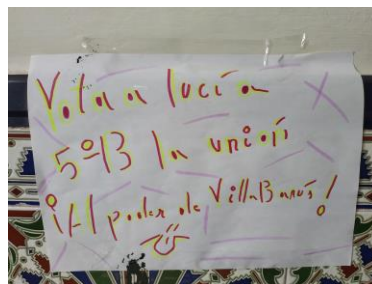 Vota a lucía
5ºB la unión
¡El poder de VillaBanús!